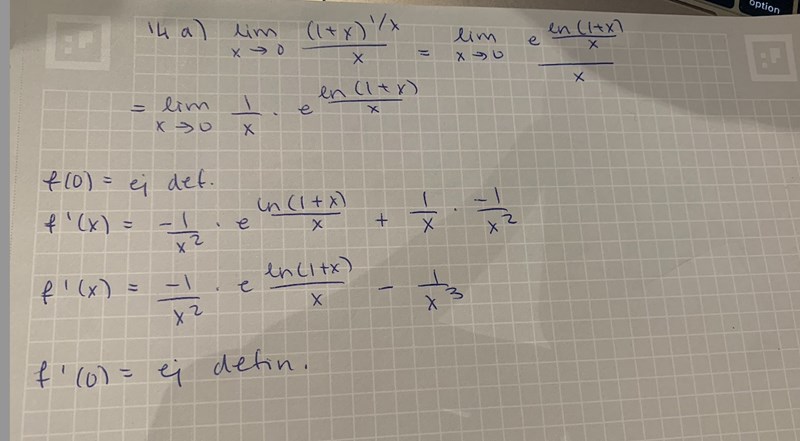 option
14 a) lim x→0 (1+x)^1/x / x = lim x→0 e^(ln(1+x)/x) / x
= lim x→0 1/x · e^(ln(1+x)/x)
f(0) = ej def.
f'(x) = -1/x² · e^(ln(1+x)/x) + 1/x · -1/x²
f'(x) = -1/x² · e^(ln(1+x)/x) - 1/x³
f'(0) = ej defin.